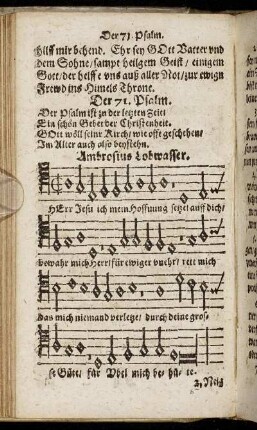 Der 71. Psalm.
hilff mir behend. Ehr sey GOtt Vatter vnd
dem Sohne/ sampt heilgem Geist/ einigem
Gott/ der helff e vns auß aller Not/ zur ewign
Frewd ins Himels Throne.
Der 71. Psalm.
Der Psalm ist zu der letzten Zeit
Ein schön Gebet der Christenheit.
GOtt wöll seine Kirch/ wie offt geschehen/
Im Alter auch also beystehn.
Ambrosius Lobwasser.
HErr Jesu ich mein Hoffnung setzt auff dich/
bewahr mich Herr/ für ewiger vnehr/ rett mich
das mich niemand verletze/ durch deine gros-
se Güte/ für Vbel mich be/ hü/ te.
2. Neig